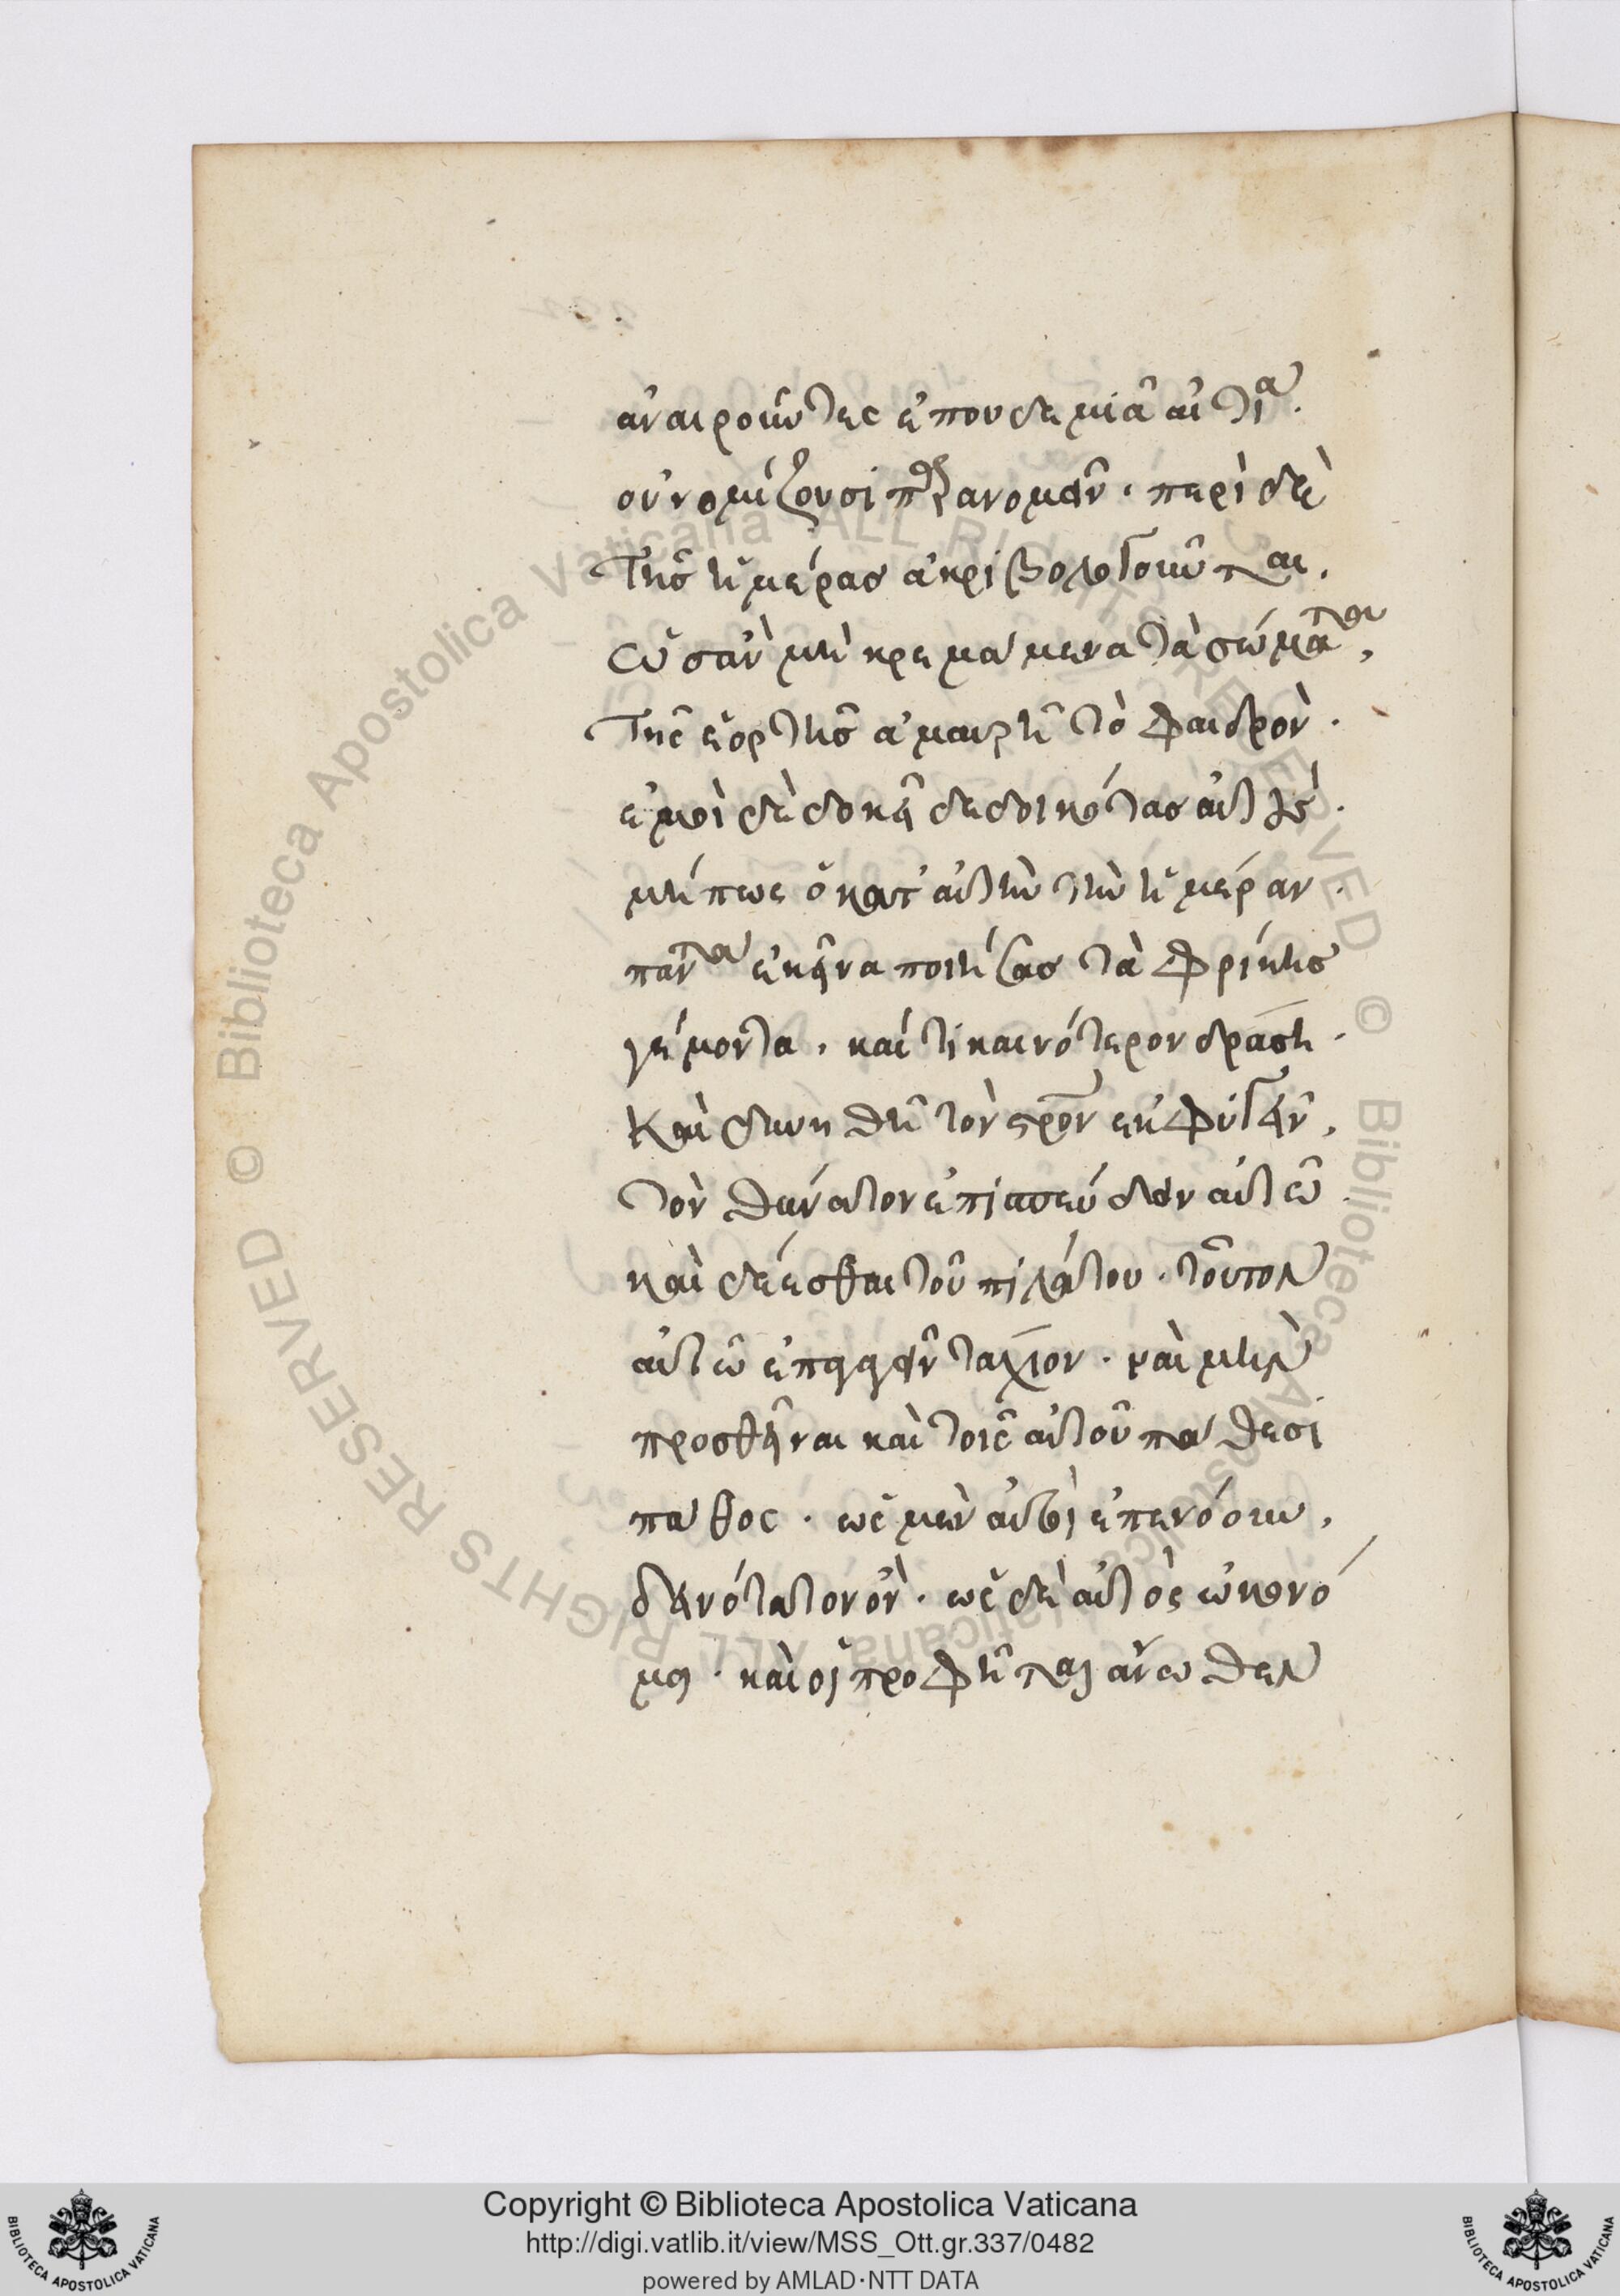 ἀναιροῦντες ἐπ' οὐδεμιᾷ αἰτίᾳ.
οὐ νομίζουσι παρανομεῖν. περὶ δὲ
τῆς ἡμέρας ἀκριβολογοῦνται,
ὡς ἂν μὴ κρεμάμενα τὰ σώματα,
τῆς ἑορτῆς ἀμαυροῖ τὸ φαιδρὸν.
ἐμοὶ δὲ δοκεῖ δεδοικότας αὐτοὺς.
μήπως ὁ κατ' αὐτὴν τὴν ἡμέραν.
πάντα ἐκεῖνα ποιήσας τὰ φρίκης
γέμοντα, καί τι καινότερον δράσῃ.
καὶ δυνηθῇ τὸν σταυρὸν ἐκφυγεῖν,
τὸν θάνατον ἐπισπεύδειν αὐτῶ
καὶ δέεσθαι τοῦ πιλάτου. τοῦτον
αὐτῶ ἐπαγαγεῖν τάχιον. καὶ μὴν
προσθεῖναι καὶ τοῖς αὐτοῦ πάθεσι
πάθος. ὡς μὲν αὐτοὶ ἐπενόουν,
δεινότατον ὂν. ὡς δὲ αὐτὸς ὠκονό
μει. καὶ οἱ προφῆται ἄνωθεν
Copyright © Biblioteca Apostolica Vaticana
http://digi.vatlib.it/view/MSS_Ott.gr.337/0482
powered by AMLAD·NTT DATA